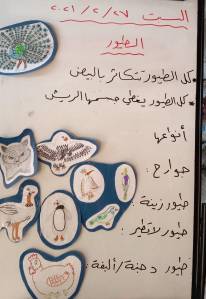 السبت ٢٧/٢/٢٠٢١
الطيور
* كل الطيور تتكاثر بالبيض
* كل الطيور يغطي جسمها الريش
أنواعها
جوارح :
طيور زينة :
طيور لا تطير :
طيور داجنة/أليفة :